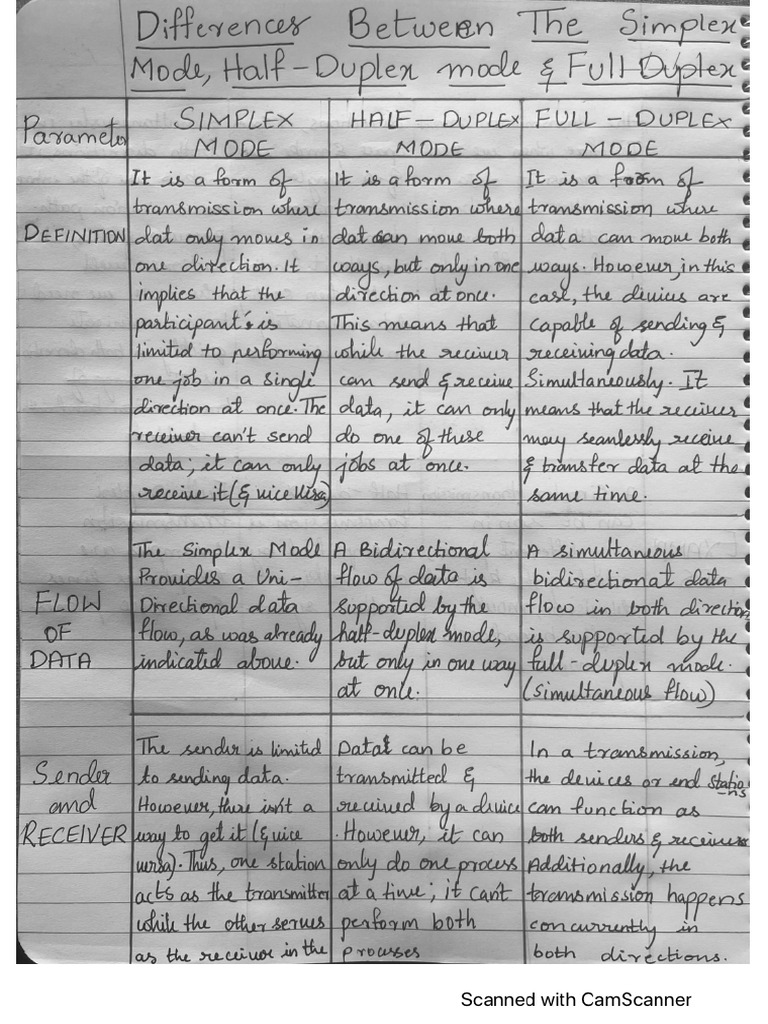 Differences Between The Simplex
Mode, Half-Duplex mode & Full Duplex
Parameter
SIMPLEX
MODE
HALF-DUPLEX
MODE
FULL-DUPLEX
MODE
DEFINITION
It is a form of
transmission where
dat only moves in
one direction. It
implies that the
participant's is
limited to performing
one job in a single
direction at once. The
receiver can't send
data; it can only
receive it (& vice versa)
It is a form of
transmission where
dat can move both
ways, but only in one
direction at once.
This means that
while the receiver
can send & receive
data, it can only
do one of these
jobs at once.
It is a form of
transmission where
data can move both
ways. However, in this
case, the devices are
capable of sending &
receiving data.
Simultaneously. It
means that the receiver
may seamlessly receive
& transfer data at the
same time.
FLOW
OF
DATA
The Simplex Mode
Provides a Uni-
Directional data
flow, as was already
indicated above.
A Bidirectional
flow of data is
supported by the
half-duplex mode,
but only in one way
at once.
A simultaneous
bidirectional data
flow in both directions
is supported by the
full-duplex mode.
(simultaneous flow)
Sender
and
RECEIVER
The sender is limited
to sending data.
However, there isn't a
way to get it (& vice
versa). Thus, one station
acts as the transmitter
while the other serves
as the receiver in the
Data can be
transmitted &
received by a device
. However, it can
only do one process
at a time; it can't
perform both
processes
In a transmission,
the devices or end statio
ns
can function as
both senders & receivers
Additionally, the
transmission happens
concurrently in
both directions.
Scanned with CamScanner